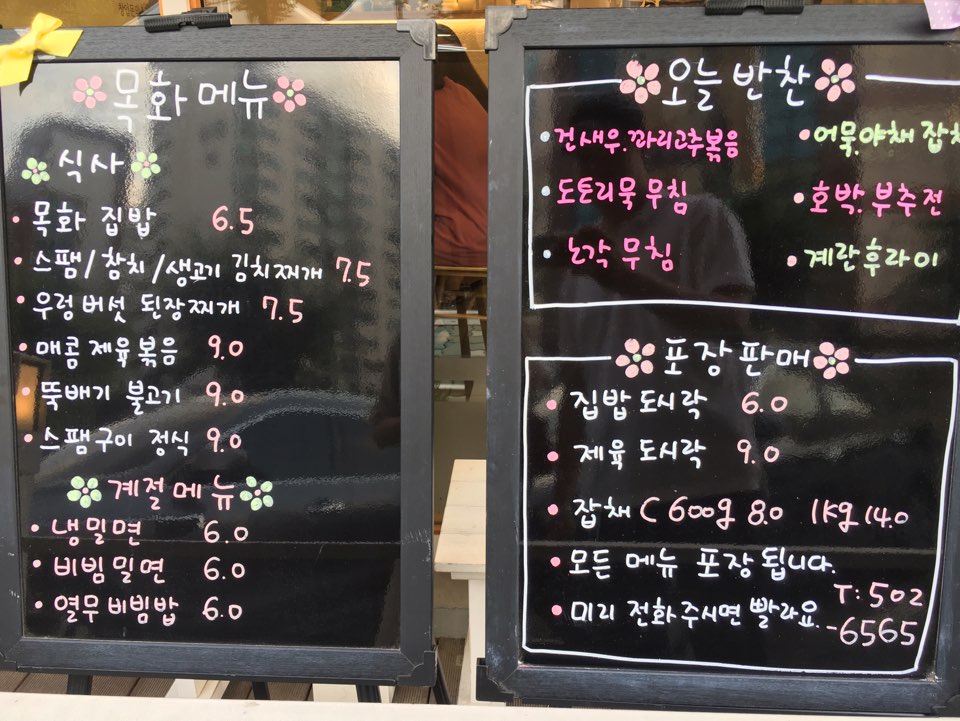 목화 메뉴
식사
목화 집밥 6.5
스팸/참치/생고기 김치찌개 7.5
우렁 버섯 된장찌개 7.5
매콤 제육볶음 9.0
뚝배기 불고기 9.0
스팸구이 정식 9.0
계절메뉴
냉밀면 6.0
비빔밀면 6.0
열무비빔밥 6.0
오늘 반찬
건새우.꽈리고추볶음
어묵.야채 잡채
도토리묵 무침
호박.부추전
노각 무침
계란후라이
포장판매
집밥도시락 6.0
제육도시락 9.0
잡채 C 600g 8.0 1kg 14.0
모든 메뉴 포장됩니다.
미리 전화주시면 빨라요.
T:502
-6565